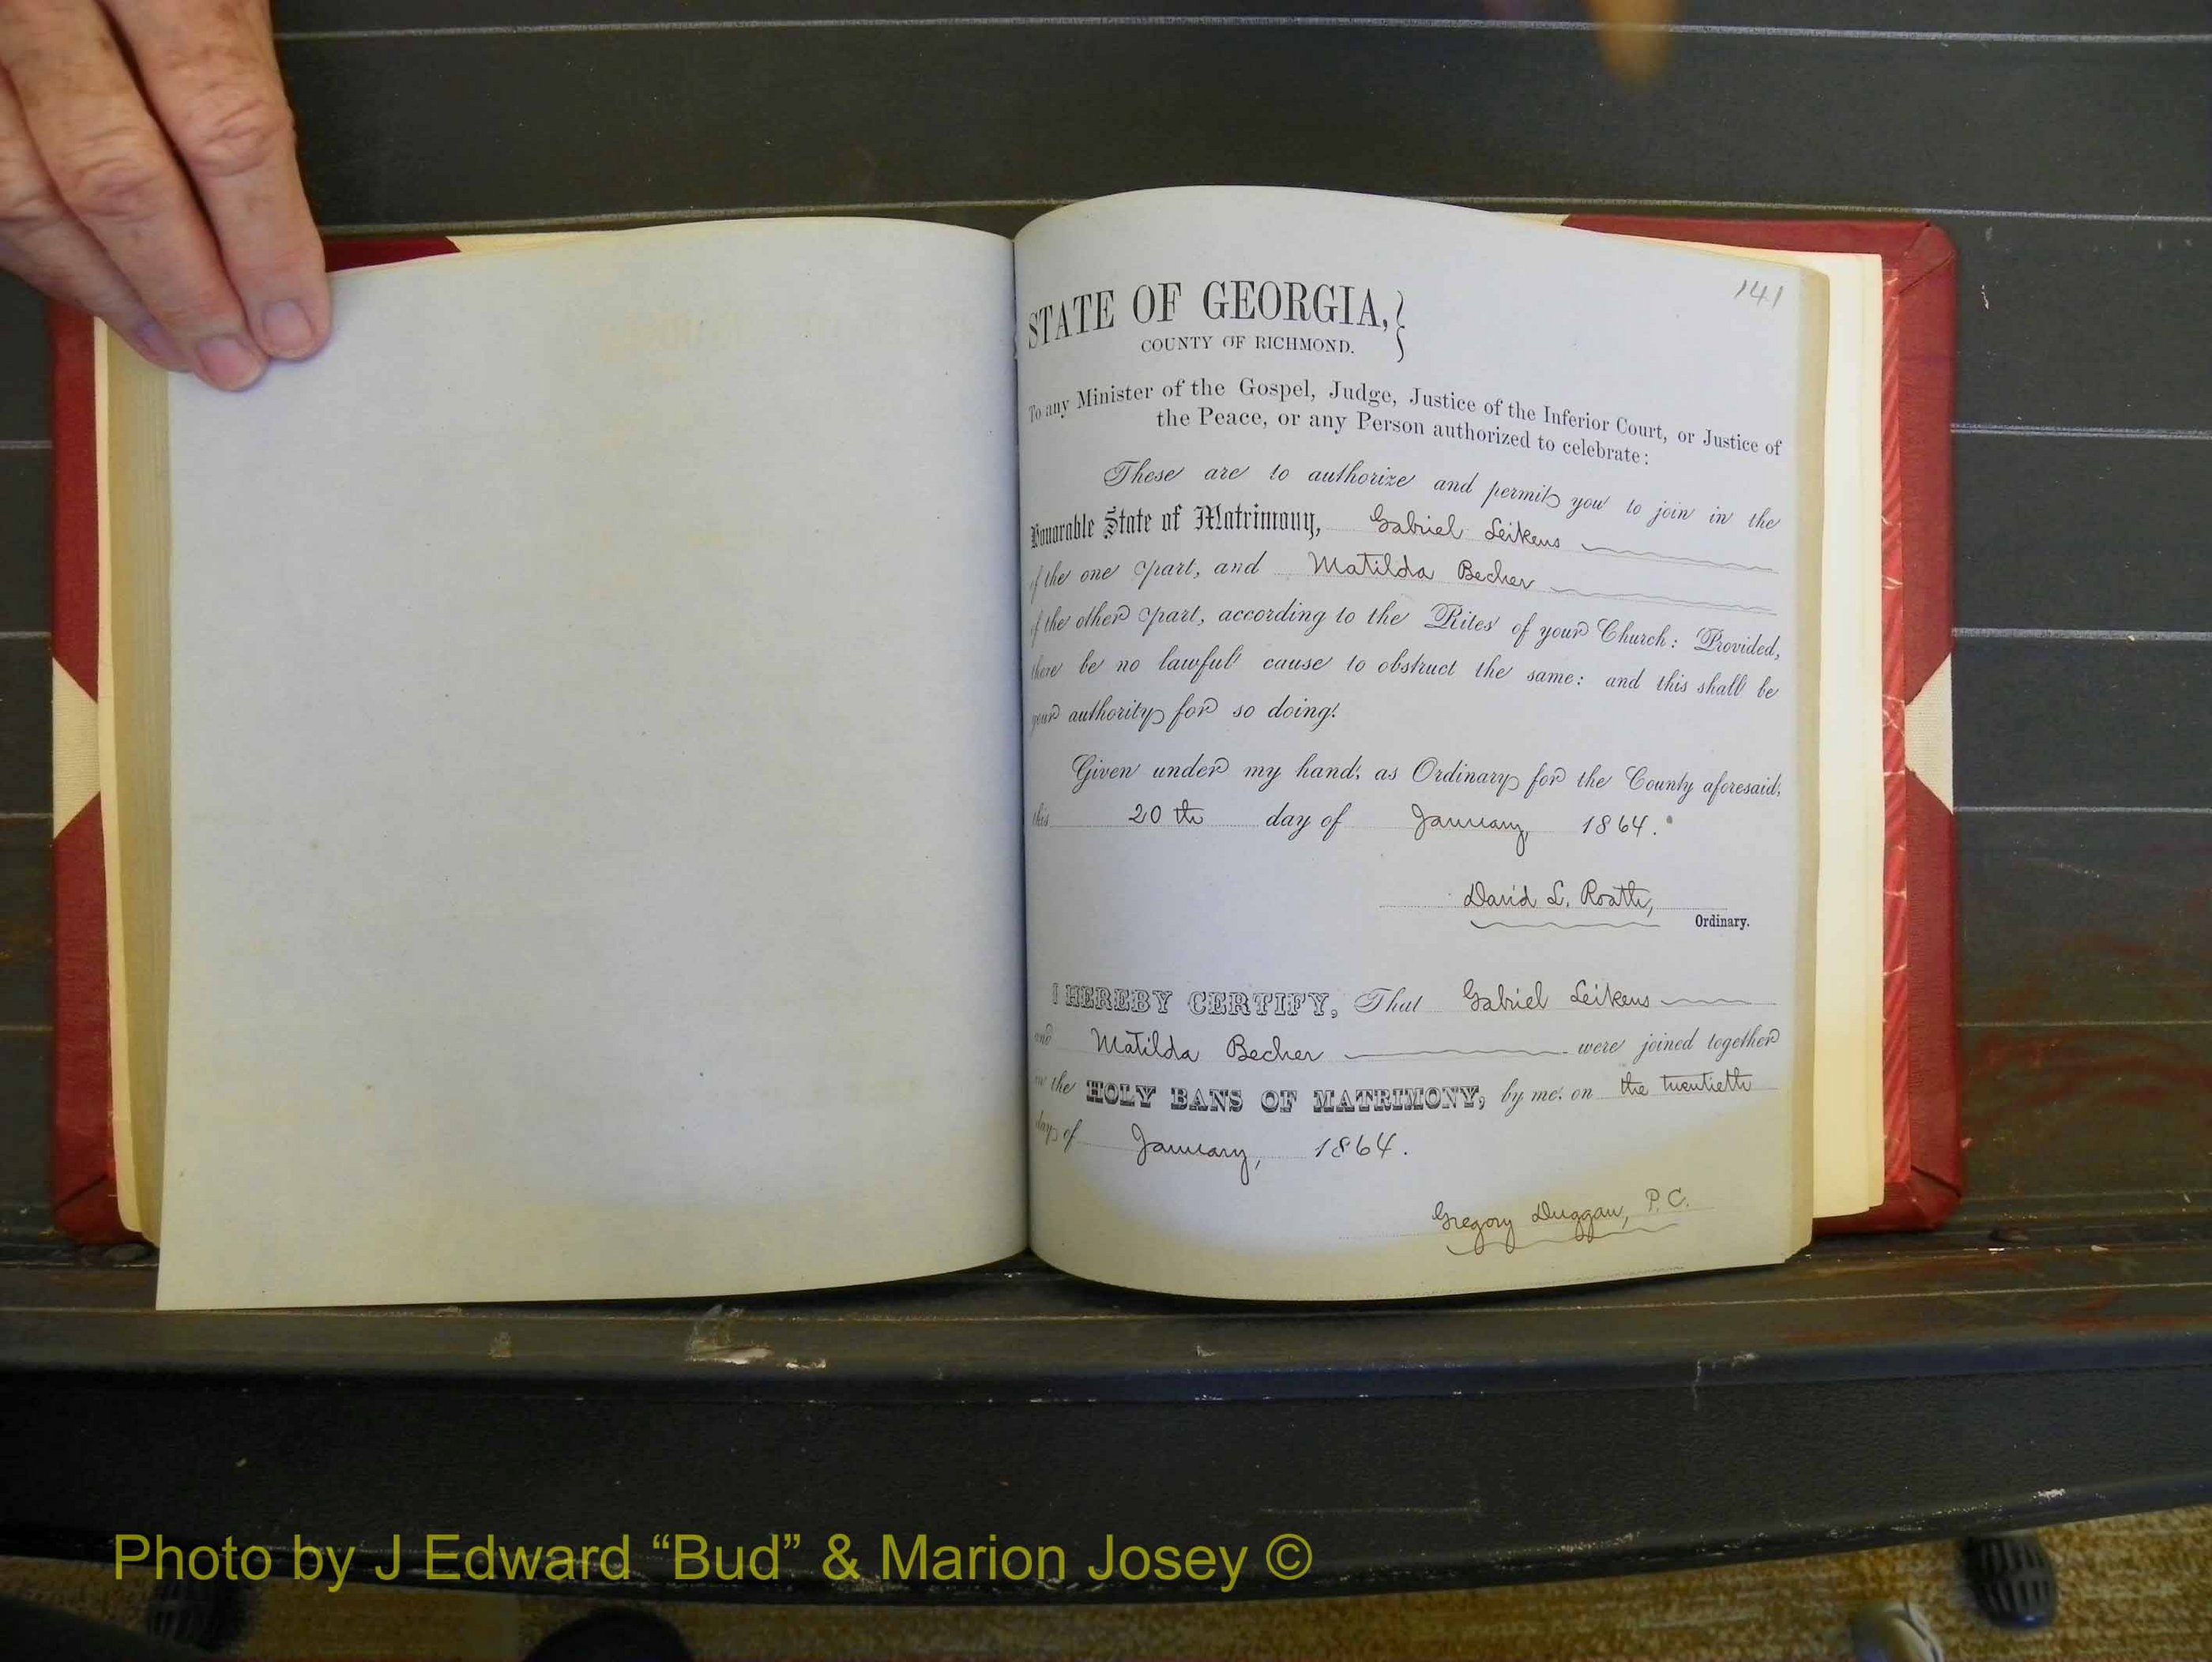 141
STATE OF GEORGIA,
COUNTY OF RICHMOND.
To any Minister of the Gospel, Judge, Justice of the Inferior Court, or Justice of
the Peace, or any Person authorized to celebrate:
These are to authorize and permit you to join in the
Honorable State of Matrimony, Gabriel Leikens
of the one part, and Matilda Becher
of the other part, according to the Rites of your Church: Provided,
there be no lawful cause to obstruct the same: and this shall be
your authority for so doing.
Given under my hand, as Ordinary for the County aforesaid,
this 20th day of January, 1864.
David L. Roath,
Ordinary.
I HEREBY CERTIFY, That Gabriel Leikens
and Matilda Becher were joined together
in the HOLY BANS OF MATRIMONY, by me, on the twentieth
day of January, 1864.
Gregory Duggan, P.C.
Photo by J Edward “Bud” & Marion Josey ©